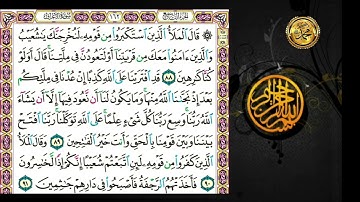 قَالَ ٱلْمَلَأُ ٱلَّذِينَ ٱسْتَكْبَرُوا۟ مِن قَوْمِهِۦ لَنُخْرِجَنَّكَ يَـٰشُعَيْبُ
وَٱلَّذِينَ ءَامَنُوا۟ مَعَكَ مِن قَرْيَتِنَآ أَوْ لَتَعُودُنَّ فِى مِلَّتِنَا ۚ قَالَ أَوَلَوْ
كُنَّا كَـٰرِهِينَ ٨٨ قَدِ ٱفْتَرَيْنَا عَلَى ٱللَّهِ كَذِبًا إِنْ عُدْنَا فِى مِلَّتِكُم
بَعْدَ إِذْ نَجَّىٰنَا ٱللَّهُ مِنْهَا ۚ وَمَا يَكُونُ لَنَآ أَن نَّعُودَ فِيهَآ إِلَّآ أَن يَشَآءَ
ٱللَّهُ رَبُّنَا ۚ وَسِعَ رَبُّنَا كُلَّ شَىْءٍ عِلْمًا ۚ عَلَى ٱللَّهِ تَوَكَّلْنَا ۚ رَبَّنَا ٱفْتَحْ
بَيْنَنَا وَبَيْنَ قَوْمِنَا بِٱلْحَقِّ وَأَنتَ خَيْرُ ٱلْفَـٰتِحِينَ ٨٩ وَقَالَ ٱلْمَلَأُ
ٱلَّذِينَ كَفَرُوا۟ مِن قَوْمِهِۦ لَئِنِ ٱتَّبَعْتُمْ شُعَيْبًا إِنَّكُمْ إِذًا لَّخَـٰسِرُونَ
٩٠ فَأَخَذَتْهُمُ ٱلرَّجْفَةُ فَأَصْبَحُوا۟ فِى دَارِهِمْ جَـٰثِمِينَ ٩١
بسم الله الرحمن الرحيم